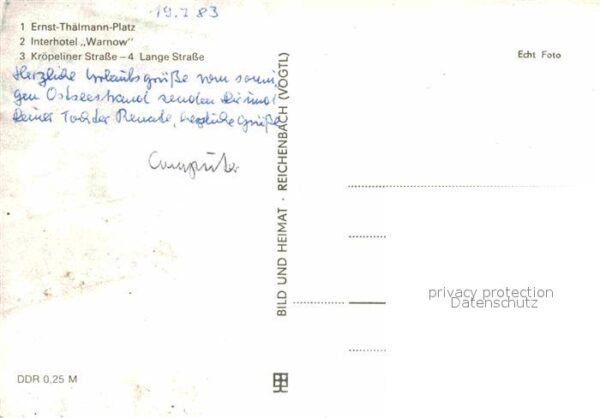 19.7.83
1 Ernst-Thälmann-Platz
2 Interhotel „Warnow"
3 Kröpeliner Straße – 4 Lange Straße
Echt Foto
Herzliche Urlaubsgrüße vom sonni-
gen Ostseestrand senden Dir und
Deiner Tochter Renate, herzliche Grüße
BILD UND HEIMAT · REICHENBACH (VOGTL)
privacy protection
Datenschutz
DDR 0,25 M